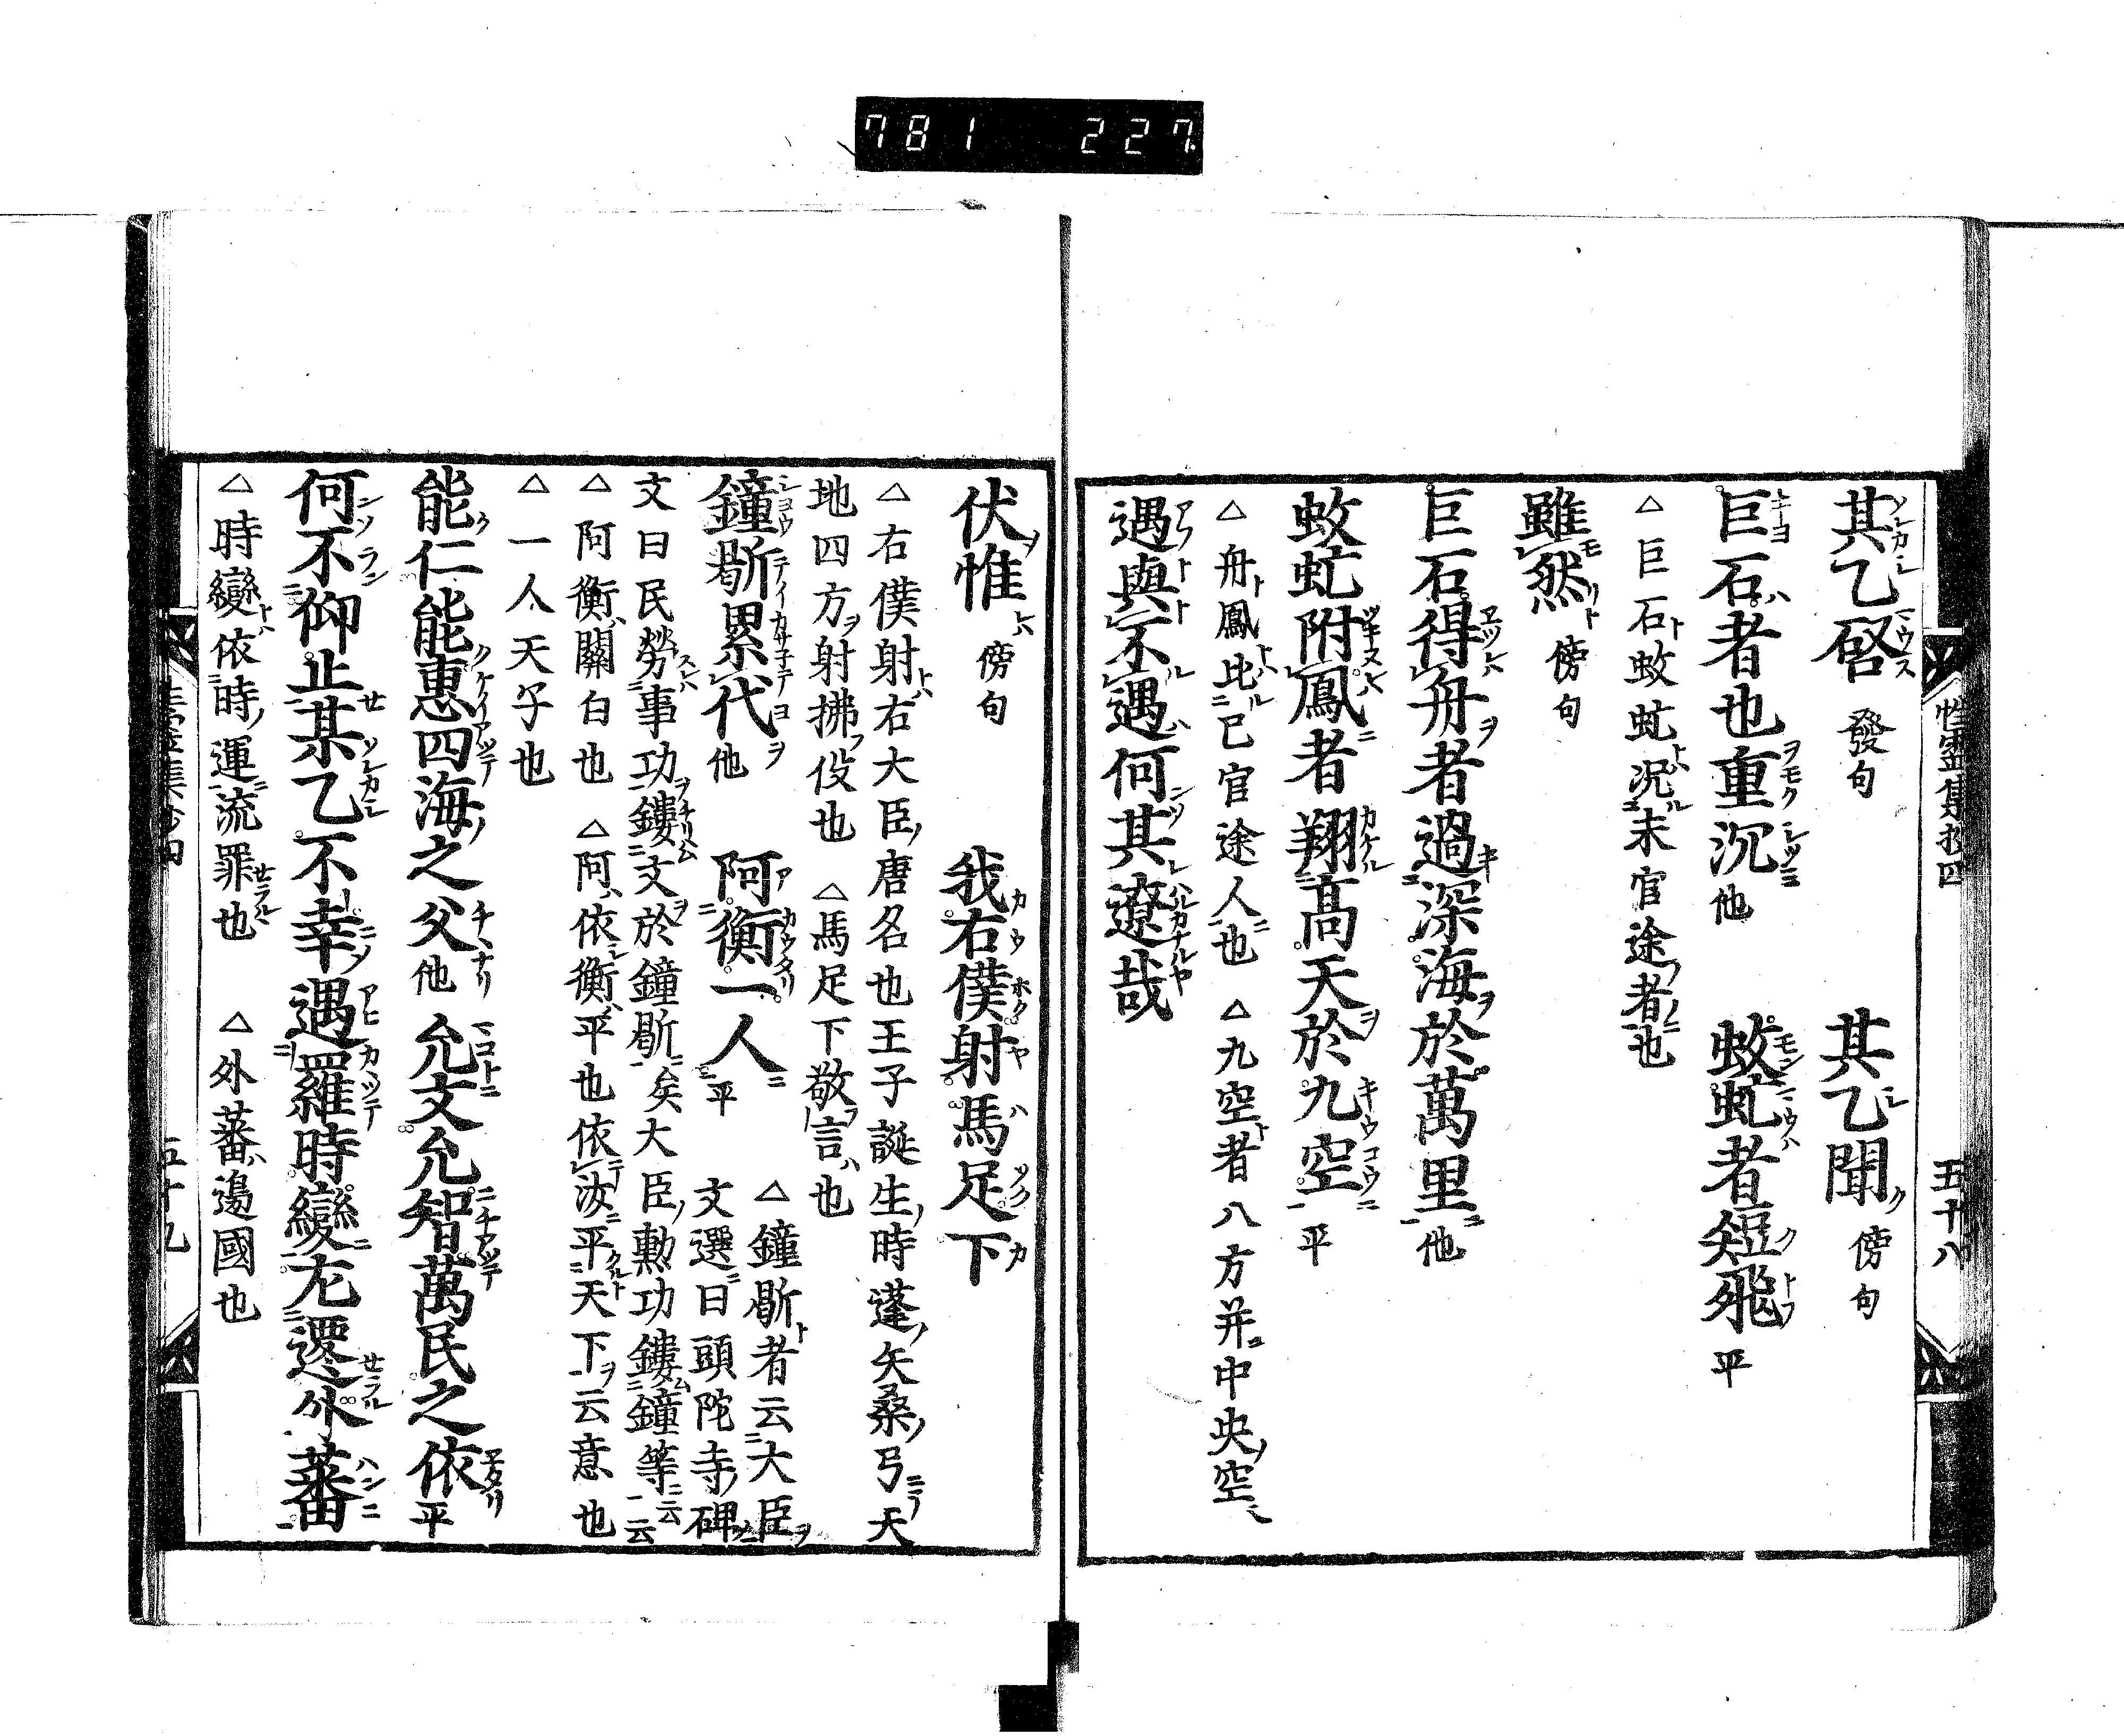 781 227.
性霊集抄四 五十八
其乙啓 發句 其乙聞 傍句
巨石者也重沉 他 蚊虻者短飛 平
△巨石蚊虻况末官途者也
雖然 傍句
巨石得舟者過深海於萬里 他
蚊虻附鳳者翔髙天於九空 平
△舟鳳比已官途人也 △九空者八方并中央空
遇與不遇何其遼哉
伏惟 傍句 我右僕射馬足下
△右僕射右大臣唐名也王子誕生時蓬矢桑弓天
地四方射拂伇也 △馬足下敬言也
鐘鼎累代 他 阿衡一人 平 △鐘鼎者云大臣
文選曰頭陀寺碑
文曰民勞事功鏤文於鐘鼎矣大臣勲功鏤鐘等云云
△阿衡關白也 △阿依衡平也依汝平天下云意也
△一人天子也
能仁能惠四海之父 他 允文允智萬民之依 平
何不仰止某乙不幸遇羅時變左遷外蕃
△時變依時運流罪也 △外蕃邊國也
五十九